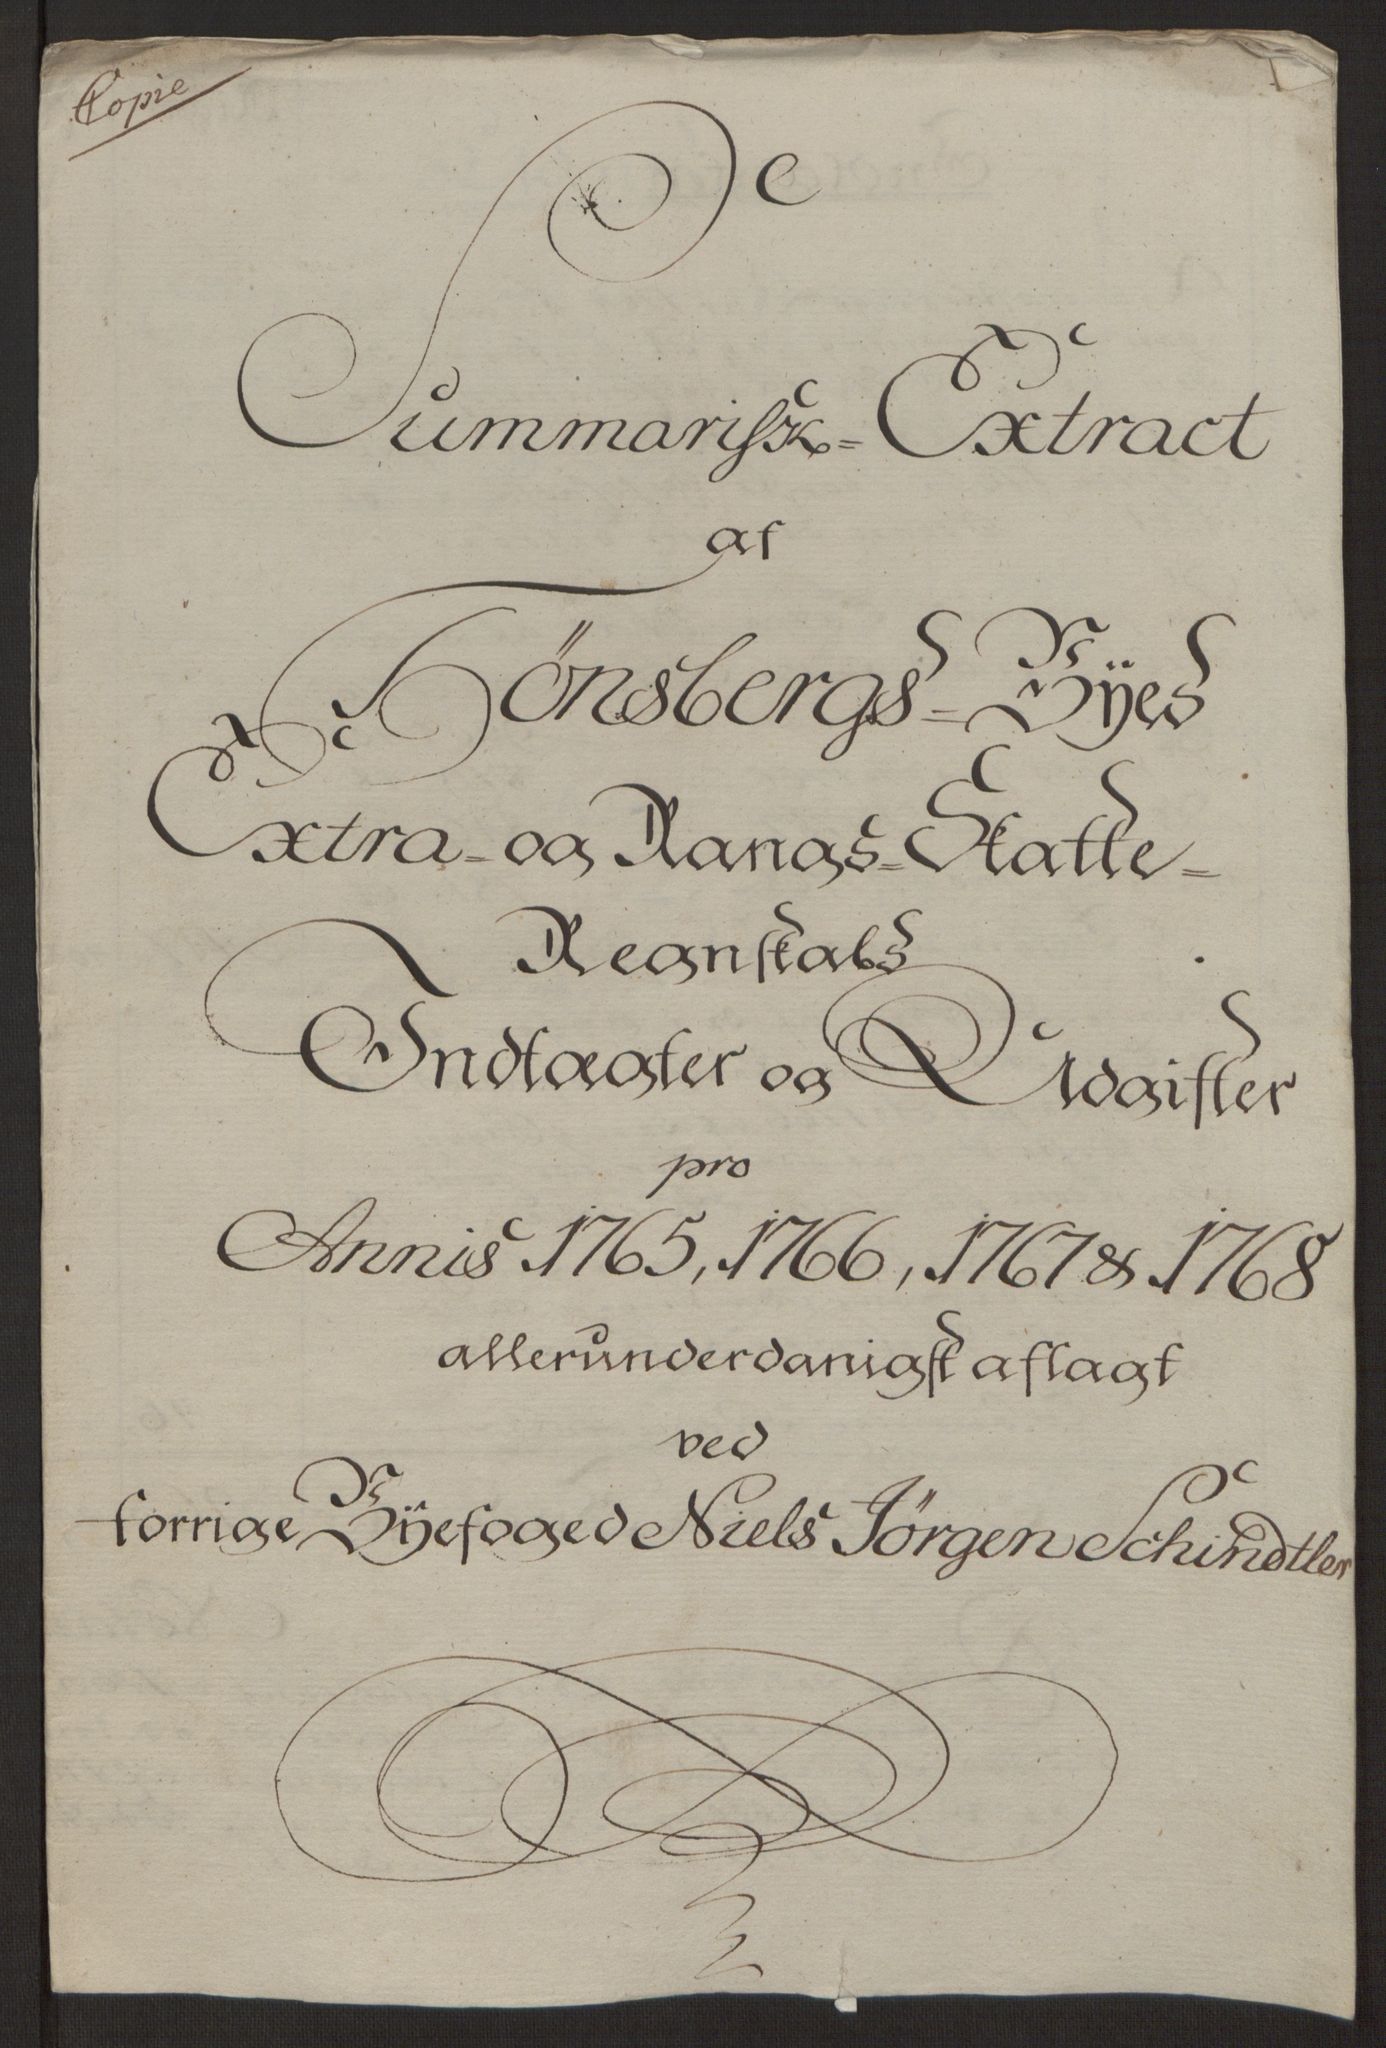 Copie
Summarisk=Extract
af
Tönsbergs=Bÿes
Extra=og Rangs=Skatte=
Regnskabs
Indtægter og Udgifter
pro
Annis 1765, 1766, 1767 & 1768
allerunderdanigst aflagt
ved
forrige Bÿefoged Niels Jörgen Schindtler